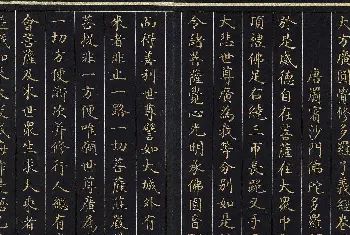 大方廣圓覺修多羅了義經卷
唐罽賓沙門佛陀多羅
於是威德自在菩薩在大眾中
頂禮佛足右繞三帀長跪叉手
大悲世尊廣為我等分別如是
令諸菩薩覺心光明承佛圓音
而得善利世尊譬如大城外有
來者非止一路一切菩薩莊嚴
菩提非一方便唯願世尊廣為
一切方便漸次并修行人總有
會菩薩及末世眾生求大乘者